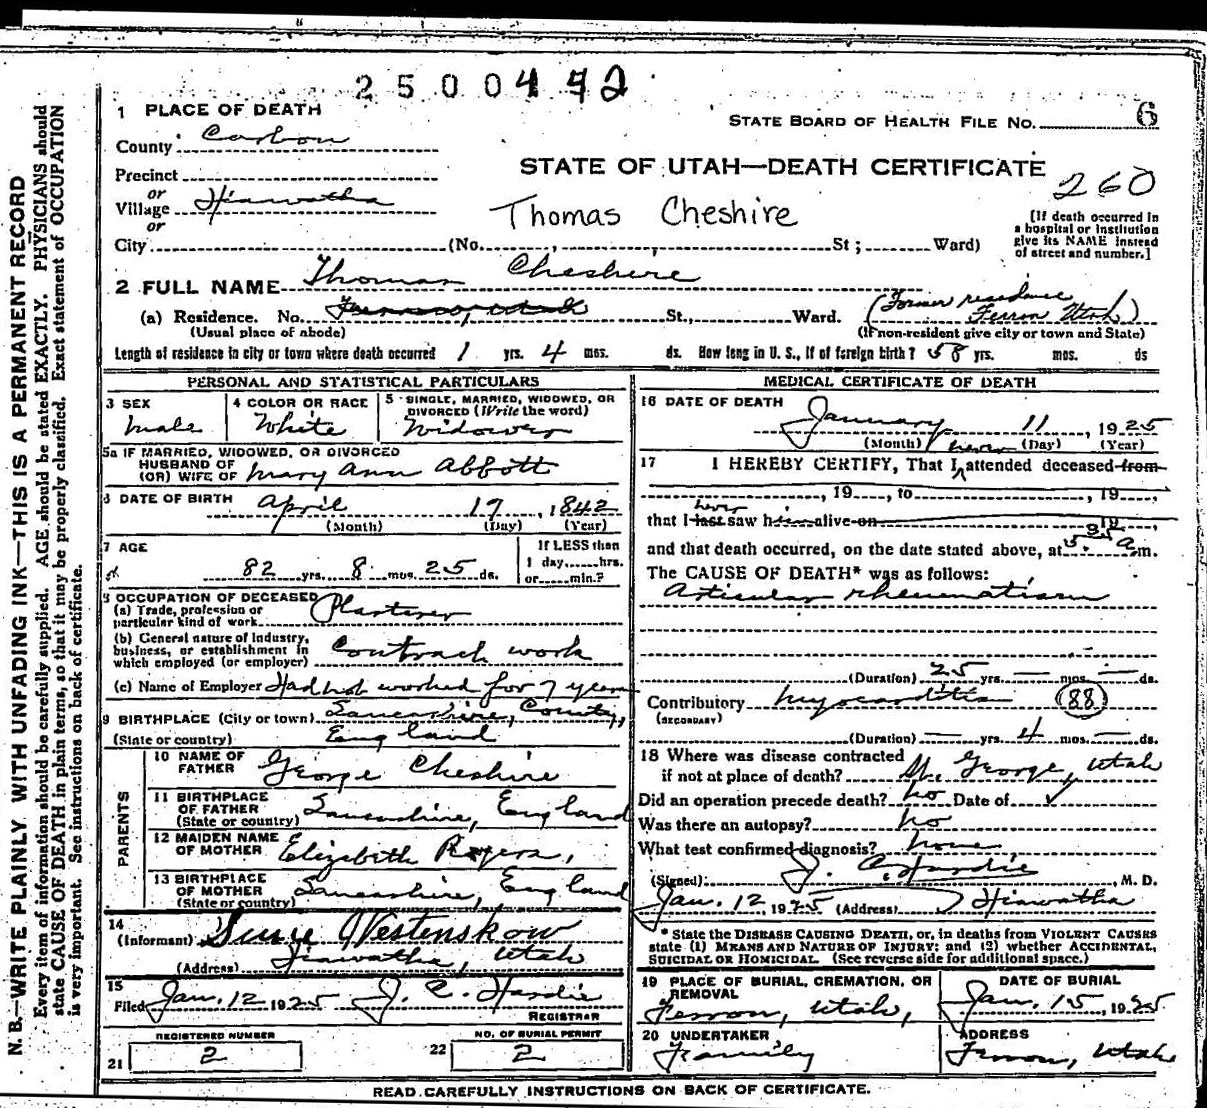 2500442
1 PLACE OF DEATH
STATE BOARD OF HEALTH FILE NO. 6
County Carbon
STATE OF UTAH—DEATH CERTIFICATE
260
Precinct
or
Village Hiawatha
or
Thomas Cheshire
[If death occurred in a hospital or institution give its NAME instead of street and number.]
City (No. , , St ; Ward)
2 FULL NAME Thomas Cheshire
(a) Residence. No. Ferron, Utah St., Ward. (Former residence Ferron Utah)
(Usual place of abode) (If non-resident give city or town and State)
Length of residence in city or town where death occurred 1 yrs. 4 mos. ds. How long in U. S., if of foreign birth? 58 yrs. mos. ds
PERSONAL AND STATISTICAL PARTICULARS
3 SEX
male
4 COLOR OR RACE
White
5 SINGLE, MARRIED, WIDOWED, OR DIVORCED (Write the word)
Widower
5a IF MARRIED, WIDOWED, OR DIVORCED
HUSBAND OF
(OR) WIFE OF Mary Ann Abbott
6 DATE OF BIRTH April 17, 1842
(Month) (Day) (Year)
7 AGE
82 yrs. 8 mos. 25 ds.
If LESS than
1 day,......hrs.
or......min.?
8 OCCUPATION OF DECEASED
(a) Trade, profession or
particular kind of work Plasterer
(b) General nature of industry,
business, or establishment in
which employed (or employer) Contract work
(c) Name of Employer Had not worked for 7 years
9 BIRTHPLACE (City or town) Lancashire, County,
(State or country) England
PARENTS
10 NAME OF
FATHER George Cheshire
11 BIRTHPLACE
OF FATHER
(State or country) Lancashire, England
12 MAIDEN NAME
OF MOTHER Elizabeth Rogers,
13 BIRTHPLACE
OF MOTHER
(State or country) Lancashire, England
14
(Informant) Susie Westenskow
(Address) Hiawatha, Utah
15
Filed Jan. 12 1925 J. C. Hardie
REGISTRAR
REGISTERED NUMBER
21 2
NO. OF BURIAL PERMIT
22 2
MEDICAL CERTIFICATE OF DEATH
16 DATE OF DEATH
January 11, 1925
(Month) (Day) (Year)
never
17 I HEREBY CERTIFY, That I attended deceased from
, 19 , to , 19 ,
never
that I last saw him alive on 19 ,
and that death occurred, on the date stated above, at 5.35 a m.
The CAUSE OF DEATH* was as follows:
Articular rheumatism
(Duration) 25 yrs. — mos. — ds.
Contributory Myocarditis (88)
(SECONDARY)
(Duration) — yrs. 4 mos. — ds.
18 Where was disease contracted
if not at place of death? St. George, Utah
Did an operation precede death? no Date of
Was there an autopsy? no
What test confirmed diagnosis? none
(Signed) J. C. Hardie, M. D.
Jan. 12 1925 (Address) Hiawatha
* State the DISEASE CAUSING DEATH, or, in deaths from VIOLENT CAUSES
state (1) MEANS AND NATURE OF INJURY; and (2) whether ACCIDENTAL,
SUICIDAL OR HOMICIDAL. (See reverse side for additional space.)
19 PLACE OF BURIAL, CREMATION, OR
REMOVAL
Ferron, Utah,
DATE OF BURIAL
Jan. 15, 1925
20 UNDERTAKER
Family
ADDRESS
Ferron, Utah
READ CAREFULLY INSTRUCTIONS ON BACK OF CERTIFICATE.
N. B.—WRITE PLAINLY WITH UNFADING INK—THIS IS A PERMANENT RECORD
Every item of information should be carefully supplied. AGE should be stated EXACTLY. PHYSICIANS should
state CAUSE OF DEATH in plain terms, so that it may be properly classified. Exact statement of OCCUPATION
is very important. See instructions on back of certificate.